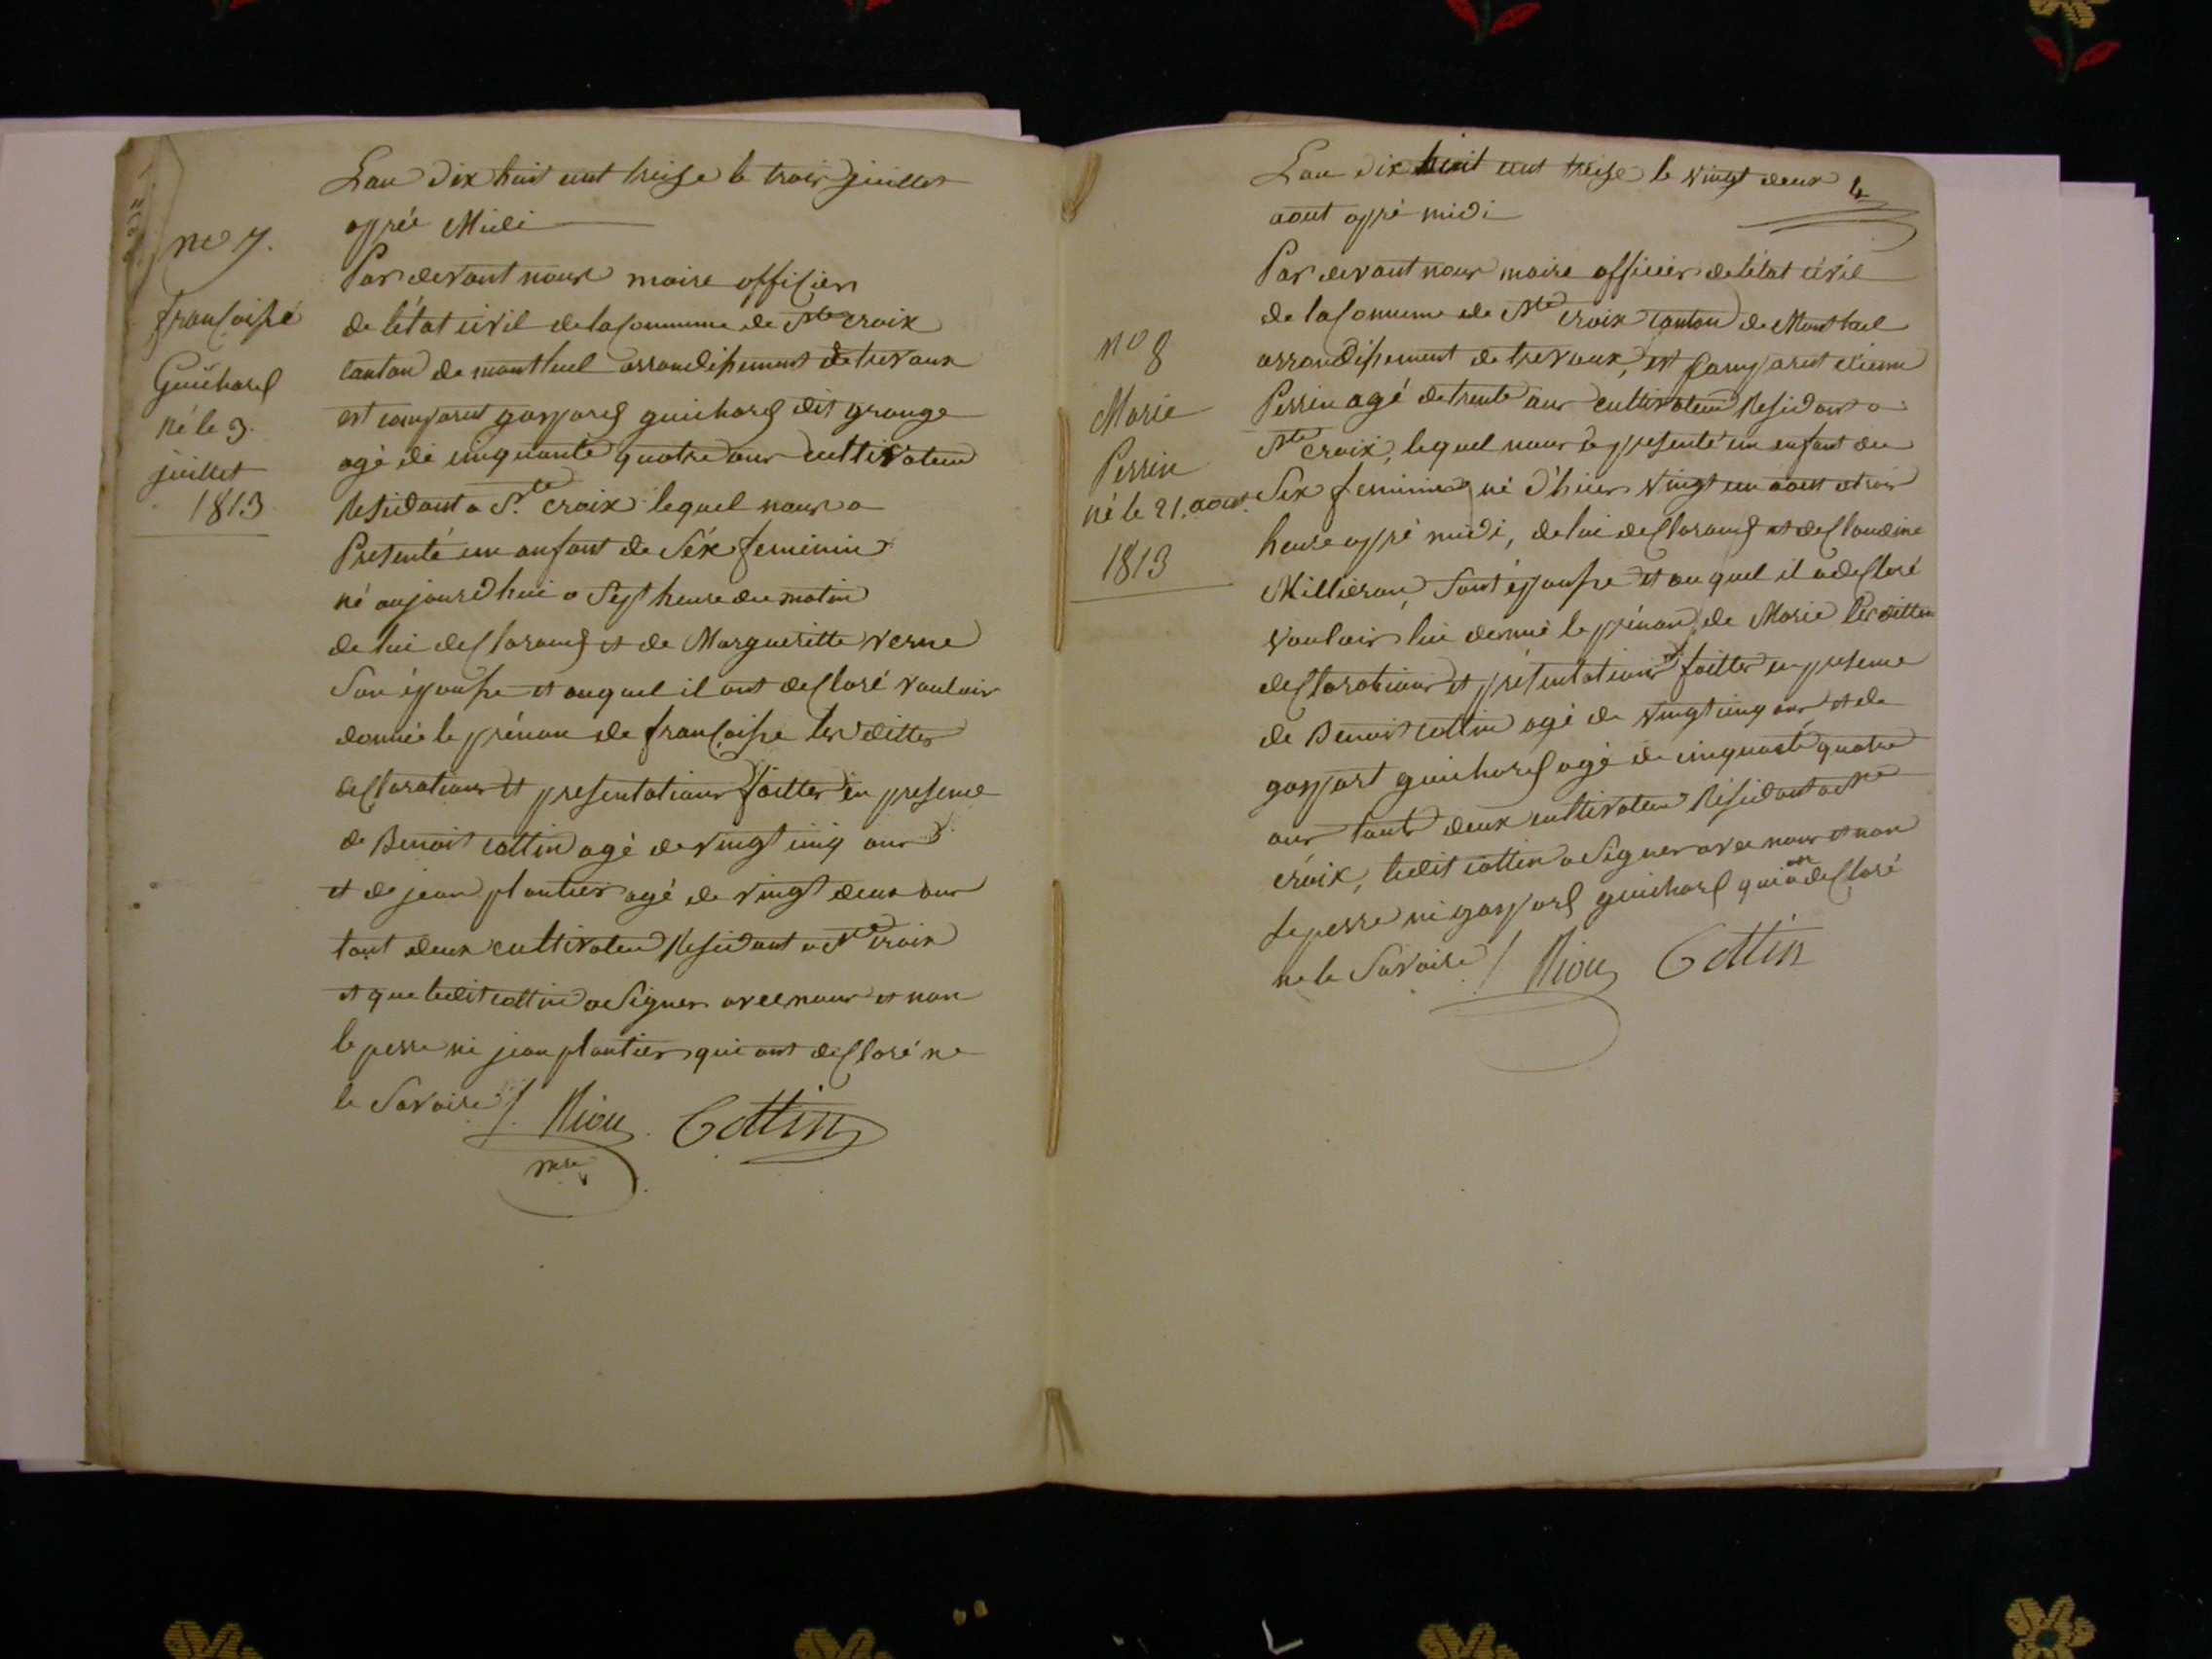 no 7.
francoise
Guichard
né le 3.
juillet
1813
Lan dix huit cent treise le trois juillet
apprés Midi
Par devant nous maire officiers
de létat civil de la Commune de Ste croix
canton de montluel arrondissement de trevoux
est comparut gaspard guichard dit grange
agé de cinquante quatre ans cultivateur
Residant a Ste croix lequel nous a
Presenté un anfant de Séx feminin
né aujourd'hui a Sept heure du matin
de lui desclarand et de Margueritte verne
Son épousse et auquel il ont desclaré vouloir
donné le prénom de francoisse les dittes
desclarations et presentations faittes en presence
de Benoit cottin agé de vingt cinq ans
et de jean plantier agé de vingt deux ans
tout deux cultivateur Residant a Ste croix
et que ledit cottin a Signer avec nous et non
le perre ni jean plantier qui ont desclaré ne
le Savoire Riou Cottin
mre
no 8
Marie
Perrin
né le 21. aout
1813
Lan dix huit cent treise le vingt deux le
aout appré midi
Par devant nous maire officier de létat civil
de la Comune de Ste croix canton de Montluel
arrondissement de trevoux, est comparut etienne
Perrin agé de trente ans cultivateur Residant a
Ste croix, lequel nous a presenté un enfant du
Sex feminin né d'hier vingt un aout a trois
heure appré midi, de lui desclarand et de Claudine
Millieran, Sont épousse et au quel il a desclaré
vouloir lui donné le prénom de Marie les dittes
desclarations et présentations faittes en presence
de Benoit cottin agé de vingt cinq ans et de
gaspart guichard agé de cinquante quatre
ans touts deux cultivateur Residant a Ste
croix, ledit cottin a Signer avec nous et non
le perre ni gaspard guichard qui on desclaré
ne le Savoire Riou Cottin